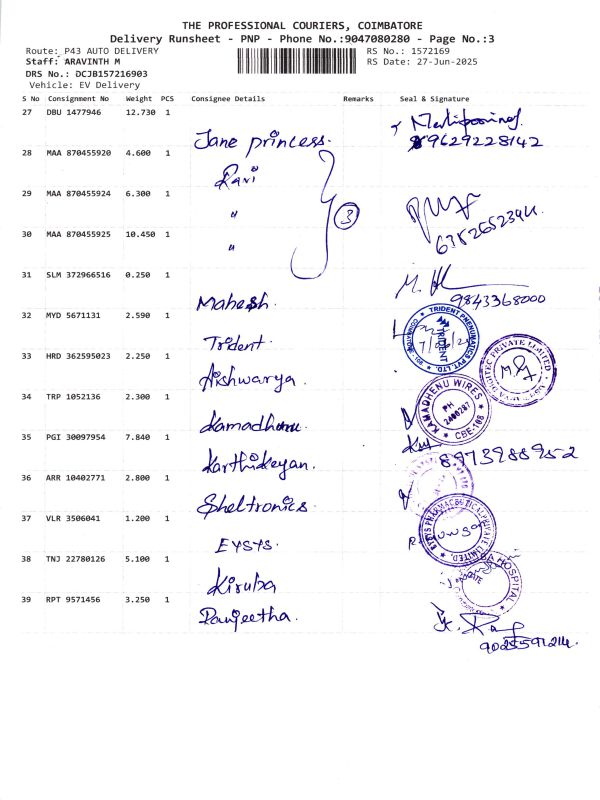 THE PROFESSIONAL COURIERS, COIMBATORE
Delivery Runsheet - PNP - Phone No.:9047080280 - Page No.:3
Route: P43 AUTO DELIVERY RS No.: 1572169
Staff: ARAVINTH M RS Date: 27-Jun-2025
DRS No.: DCJB157216903
Vehicle: EV Delivery
S No Consignment No Weight PCS Consignee Details Remarks Seal & Signature
27 DBU 1477946 12.730 1
Jane princess. 9629228142
28 MAA 870455920 4.600 1
Ravi
29 MAA 870455924 6.300 1
" 3
6382652344
30 MAA 870455925 10.450 1
"
31 SLM 372966516 0.250 1
Mahesh. 9843368000
32 MYD 5671131 2.590 1
Trident. TRIDENT PNEUMATICS PVT. LTD. COIMBATORE
33 HRD 362595023 2.250 1
Aishwarya. PRIVATE LIMITED
34 TRP 1052136 2.300 1
Kamadhenu KAMADHENU WIRES PH CBE-108
35 PGI 30097954 7.840 1
Karthikeyan. 8973988952
36 ARR 10402771 2.800 1
Sheltronics.
37 VLR 3506041 1.200 1
EYSYS. EYSYS PHARMACEUTICAL PRIVATE LIMITED
38 TNJ 22780126 5.100 1
Kiruba HOSPITAL
39 RPT 9571456 3.250 1
Ranjeetha.